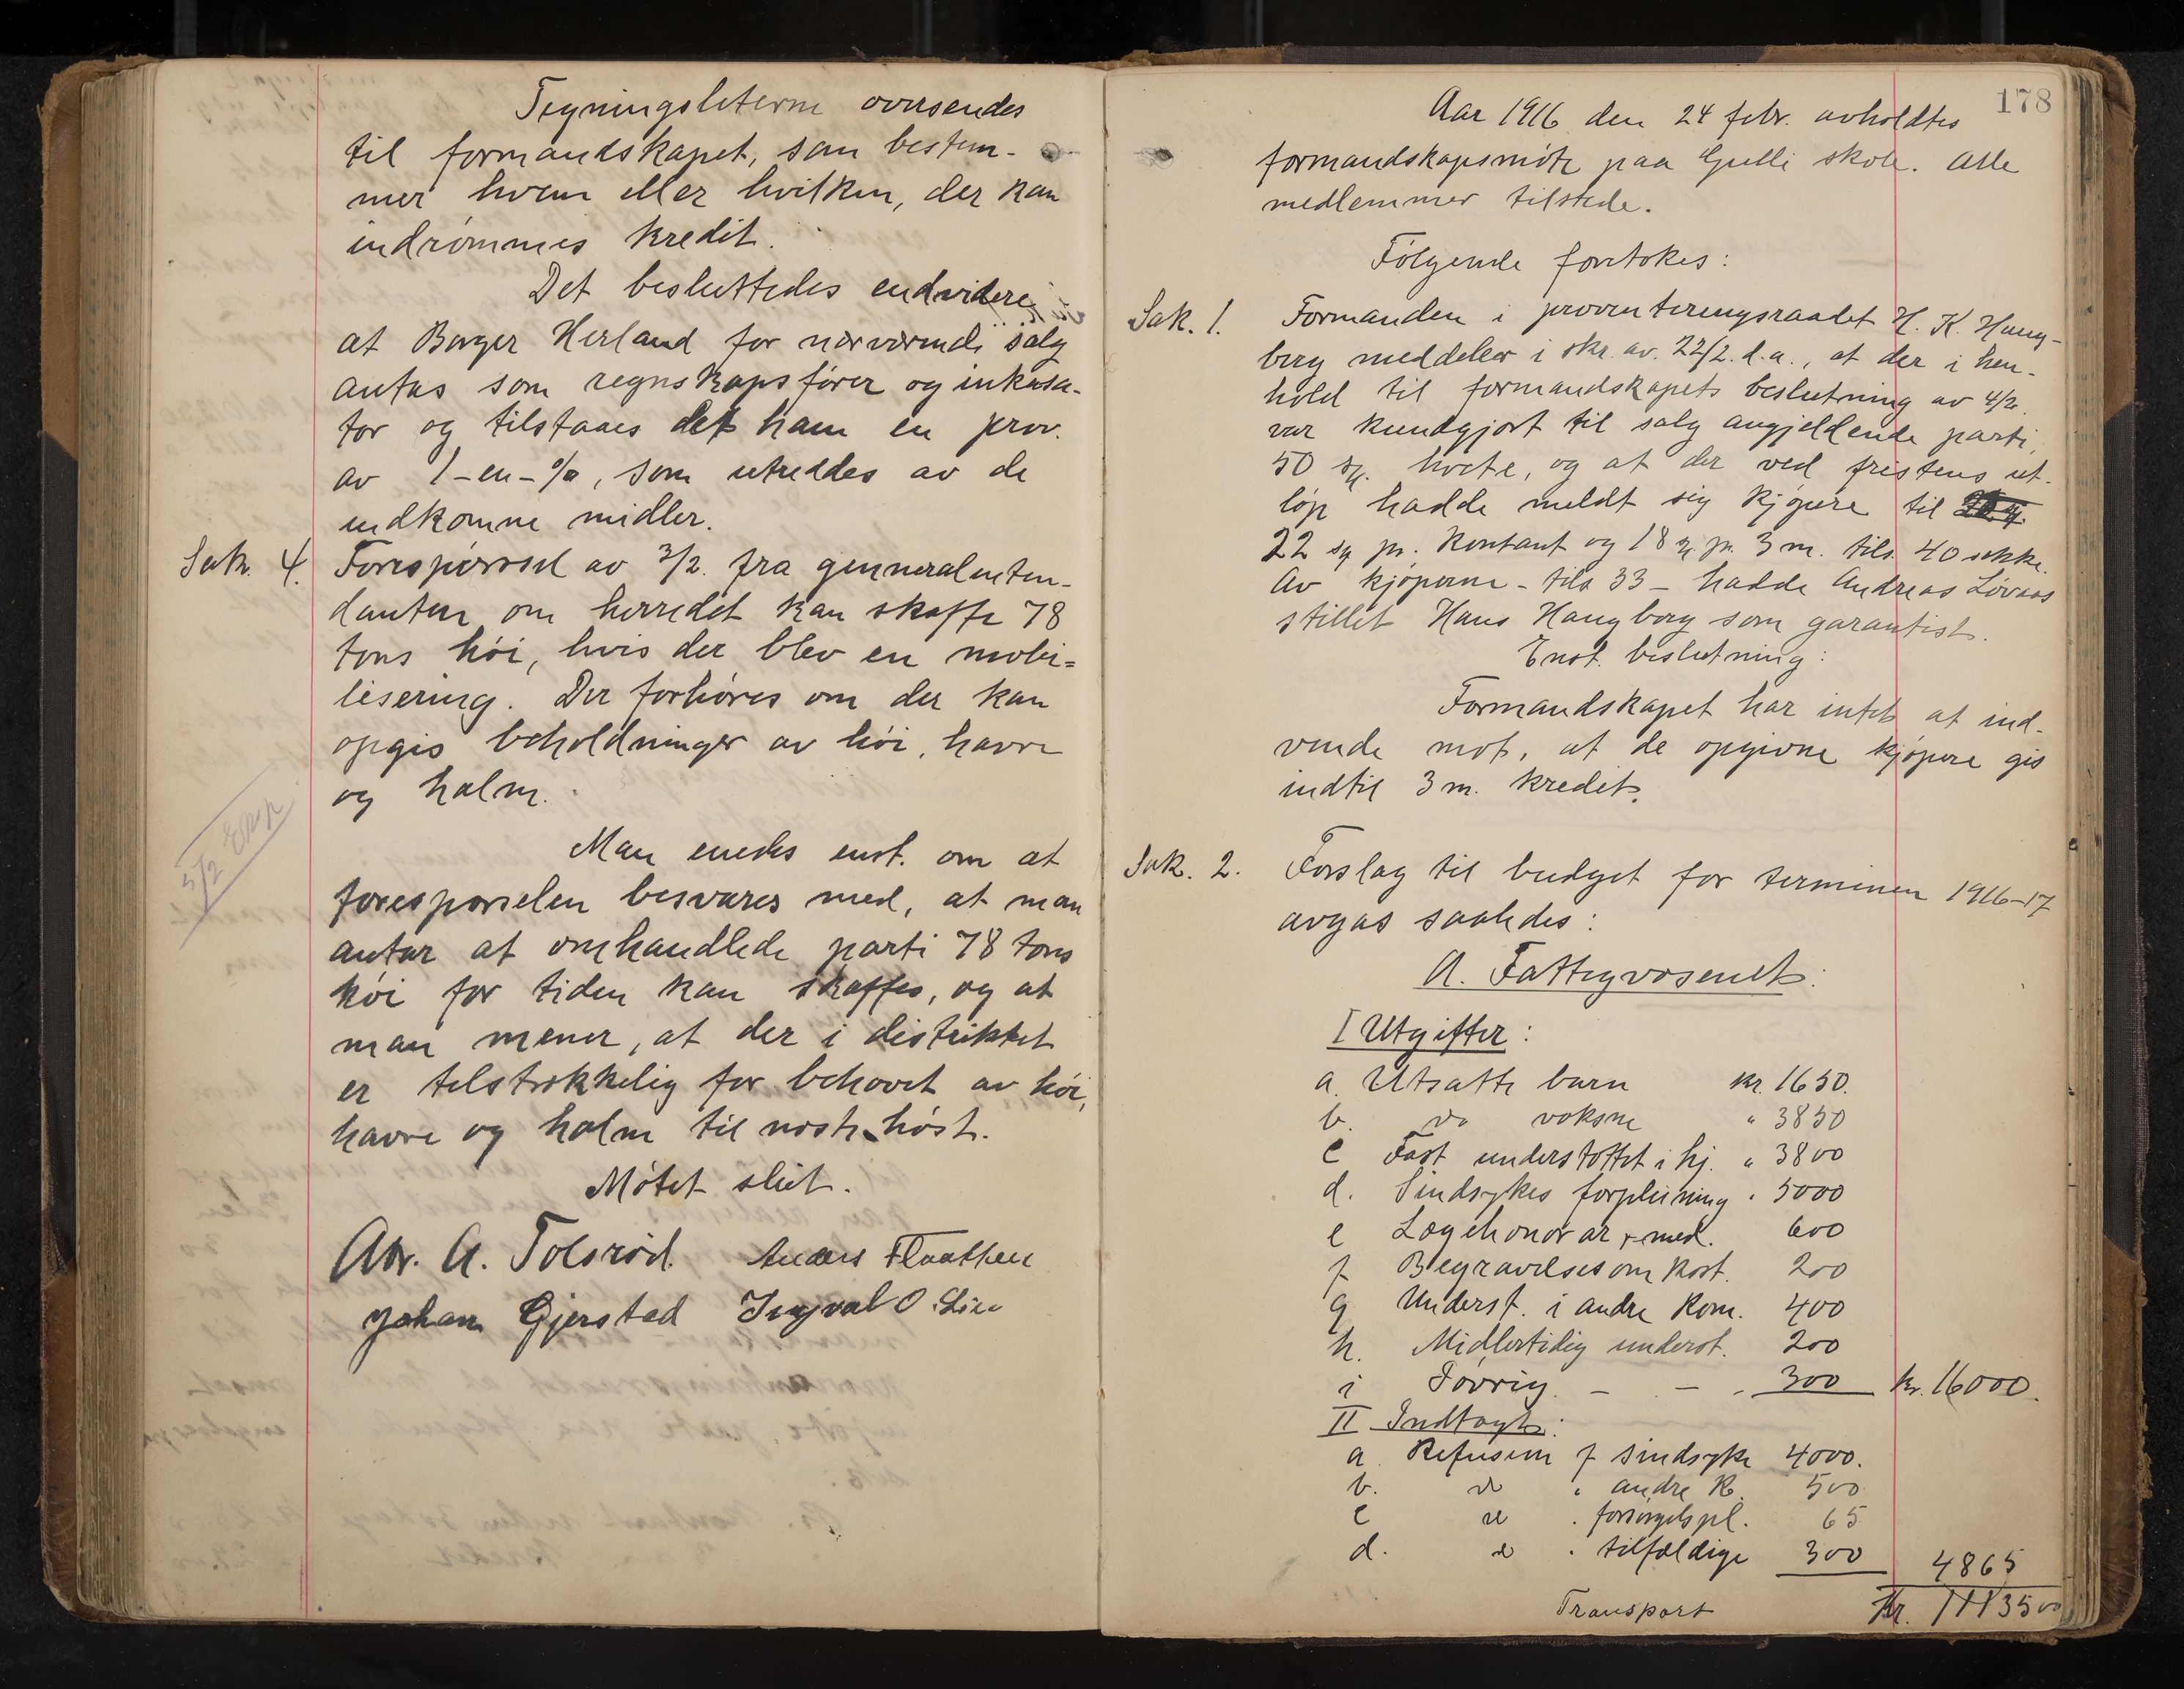 Tegningslisterne oversendes
til formandskapet, som bestem-
mer hvem eller hvilken, der kan
indrømmes kredit.
Det besluttedes endvidere,
at Borger Herland for nærværende salg
antas som regnskapsfører og inkasa-
tor og tilstaaes det ham en prov.
av 1-en-%, som utreddes av de
indkomne midler.
Sak. 4. Forespørsel av 3/2. fra generalinten-
danten om herredet kan skaffe 78
tons høi, hvis der blev en mobi=
lisering. Der forhøres om der kan
opgis beholdninger av høi, havre
og halm.
5/2 Exp
Man enedes enst. om at
forespørselen besvares med, at man
antar at omhandlede parti 78 tons
høi for tiden kan skaffes, og at
man mener, at der i distriktet
er tilstrækkelig for behovet av høi,
havre og halm til næste høst.
Møtet slut.
Abr. A. Tolsrød. Anders Flaatten
Johan Gjerstad Ingval O. Lie
178
Aar 1916 den 24 febr. avholdtes
formandskapsmøte paa Gjelli skole. Alle
medlemmer tilstede.
Følgende foretokes:
Sak. 1. Formanden i provienteringsraadet H. K. Haug-
berg meddeler i skr. av. 22/2. d.a., at der i hen-
hold til formandskapets beslutning av 4/2.
var kundgjort til salg angjeldende parti,
50 sk. hvete, og at der ved fristens ut-
løp hadde meldt sig kjøpere til
22 sk pr. kontant og 18 sk pr. 3 m. tils. 40 sekke.
Av kjøperne - tils 33 - hadde Andreas Løvaas
stillet Hans Haugberg som garantist.
Enst. beslutning:
Formandskapet har intet at ind-
vende mot, at de opgivne kjøpere gis
indtil 3 m. kredit.
Sak. 2. Forslag til budget for terminen 1916-17
avgas saaledes:
A. Fattigvæsenet:
I Utgifter:
a. Utsatte barn kr. 1650.
b. do voksne " 3850
c Fast understøttet i hj. " 3800
d. Sindsykes forpleining " 5000
e Lægehonorar + med. 600
f Begravelsesomkost. 200
g Underst. i andre kom. 400
h. Midlertidig underst. 200
i Iøvrig - - - 300 kr. 16000.
II Indtægt:
a. Refusion f sindsyke 4000.
b. do " andre k. 500
c do " forsørgelspl. 65
d. do " tilfældige 300 4865
Transport Kr. 11135 00